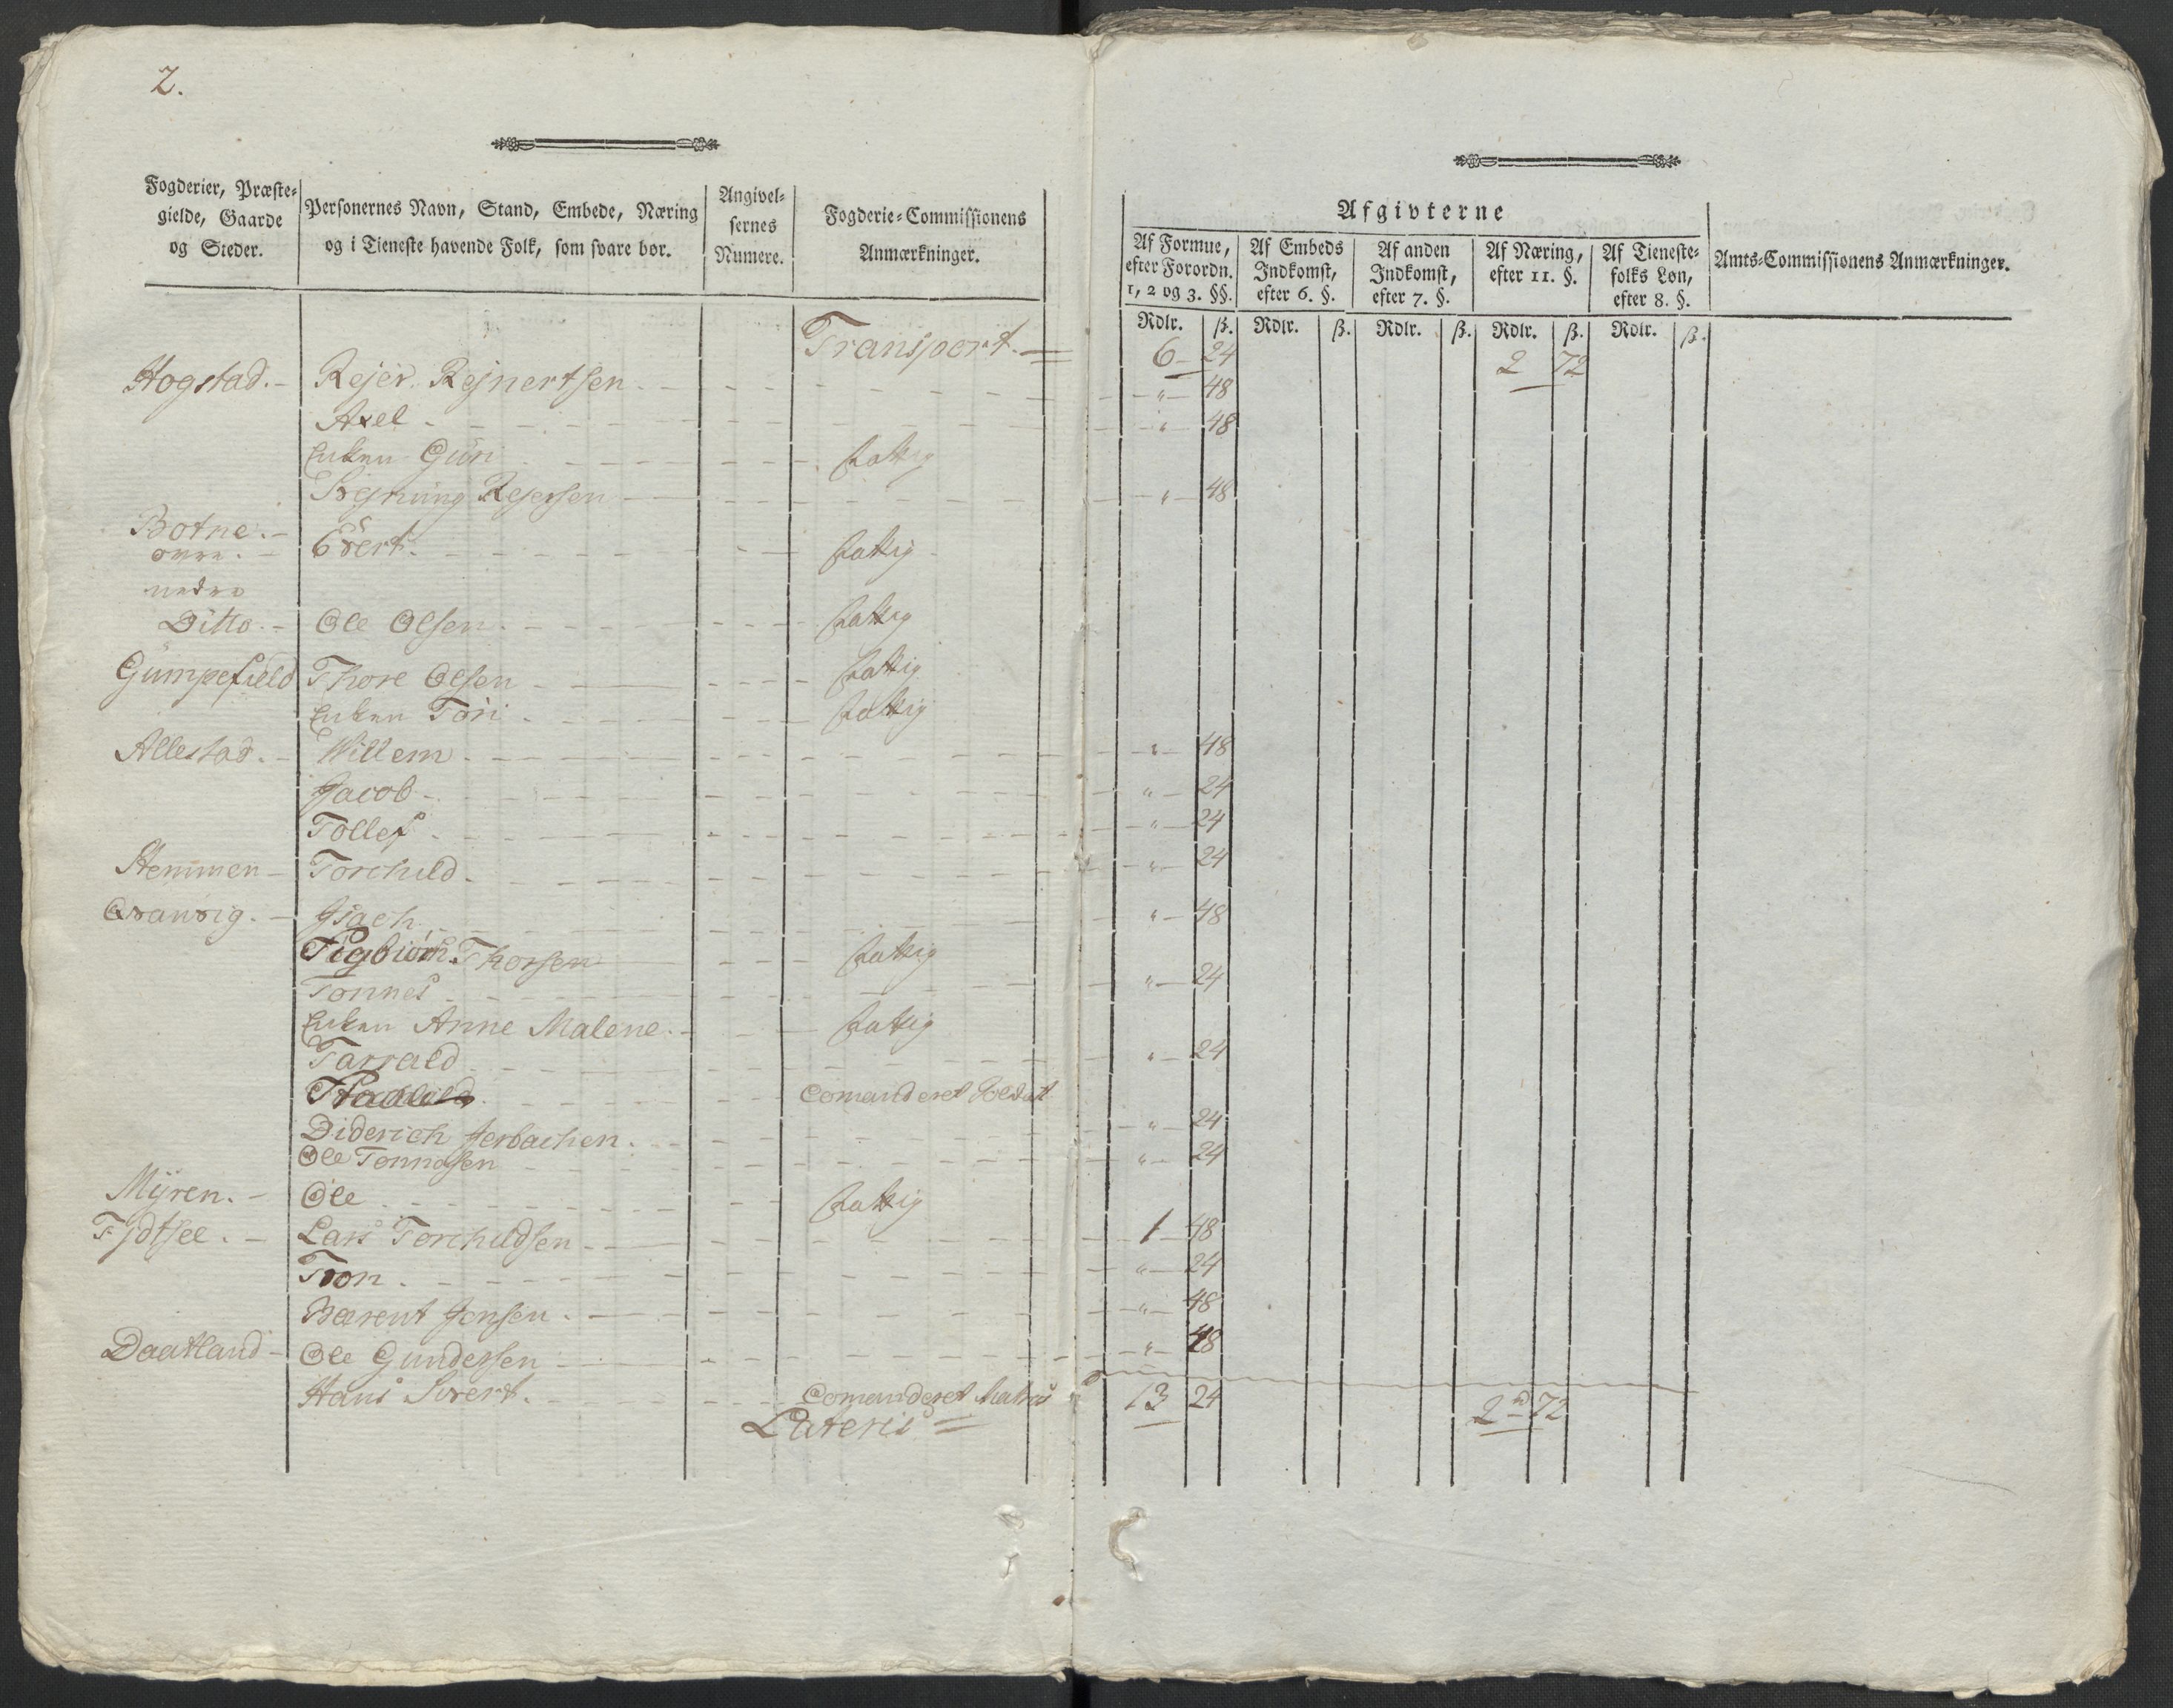 2.
Fogderier, Præste-
gielde, Gaarde
og Steder.
Personernes Navn, Stand, Embede, Næring
og i Tieneste havende Folk, som svare bør.
Angivel-
sernes
Numere.
Fogderie-Commissionens
Anmærkninger.
Afgivterne
Af Formue,
efter Forordn.
1, 2 og 3. §§.
Af Embeds
Indkomst,
efter 6. §.
Af anden
Indkomst,
efter 7. §.
Af Næring,
efter 11. §.
Af Tieneste-
folks Løn,
efter 8. §.
Amts-Commissionens Anmærkninger.
Rdlr. ß. Rdlr. ß. Rdlr. ß. Rdlr. ß. Rdlr. ß.
Transport. 6 24 2 72
Hogstad. Rejer Rejnertsen " 48
Axel " 48
Enken Guri fattig
Svejnung Rejersen " 48
Botne.
øvre. Evert. fattig
nedre
Ditto. Ole Olsen fattig
Gumpefield Thore Olsen fattig
Enken Tori fattig
Allestad. Willem " 48
Jacob " 24
Tollef " 24
Hemmen Torchild " 24
Qvanvig. Isach " 48
Sigbiörn Thorsen fattig
Tonnes " 24
Enken Anne Malene. fattig
Tarrald " 24
Comanderet Soldat
Diderich Jerbachen. " 24
Ole Tonnesen " 24
Myren. Ole fattig
Fjdtsee. Lars Torchildsen 1 48
Tron. " 24
Barent Jensen. " 48
Daatland Ole Gundersen " 48
Hans Sivert. Comanderet Matros
Lateris 13 24 2 72